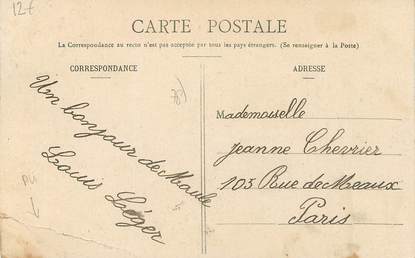 12€
CARTE POSTALE
La Correspondance au recto n'est pas acceptée par tous les pays étrangers. (Se renseigner à la Poste)
CORRESPONDANCE
ADRESSE
Un bonjour de Maule
Louis Léger
78
Mademoiselle
Jeanne Chevrier
103 Rue de Meaux
Paris